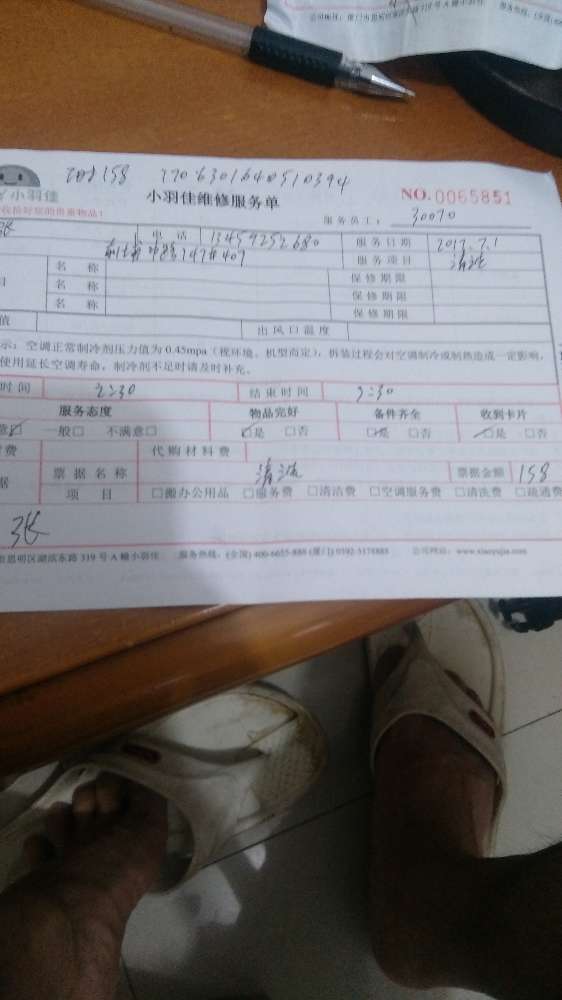 公司地址：厦门市思明区
158 1706301640510394
小羽佳
小羽佳维修服务单
NO.0065851
服务员工：30070
电话 13459252680 服务日期 2017.7.1
247#407 服务项目 清洗
名称 保修期限
名称 保修期限
名称 保修期限
值 出风口温度
示：空调正常制冷剂压力值为0.45mpa（视环境、机型而定），拆装过程会对空调制冷或制热造成一定影响，
使用延长空调寿命，制冷剂不足时请及时补充。
时间 2:30 结束时间 3:30
服务态度 物品完好 备件齐全 收到卡片
意☑ 一般□ 不满意□ ☑是 □否 ☑是 □否 ☑是 □否
费 代购材料费
据 票据名称 清洗 票据金额 158
项目 □搬办公用品 □服务费 □清洁费 □空调服务费 □清洗费 □疏通费
张
市思明区湖滨东路319号A幢小羽佳 服务热线：(全国) 400-6655-888 (厦门) 0592-5178888 公司网站：www.xiaoyujia.com